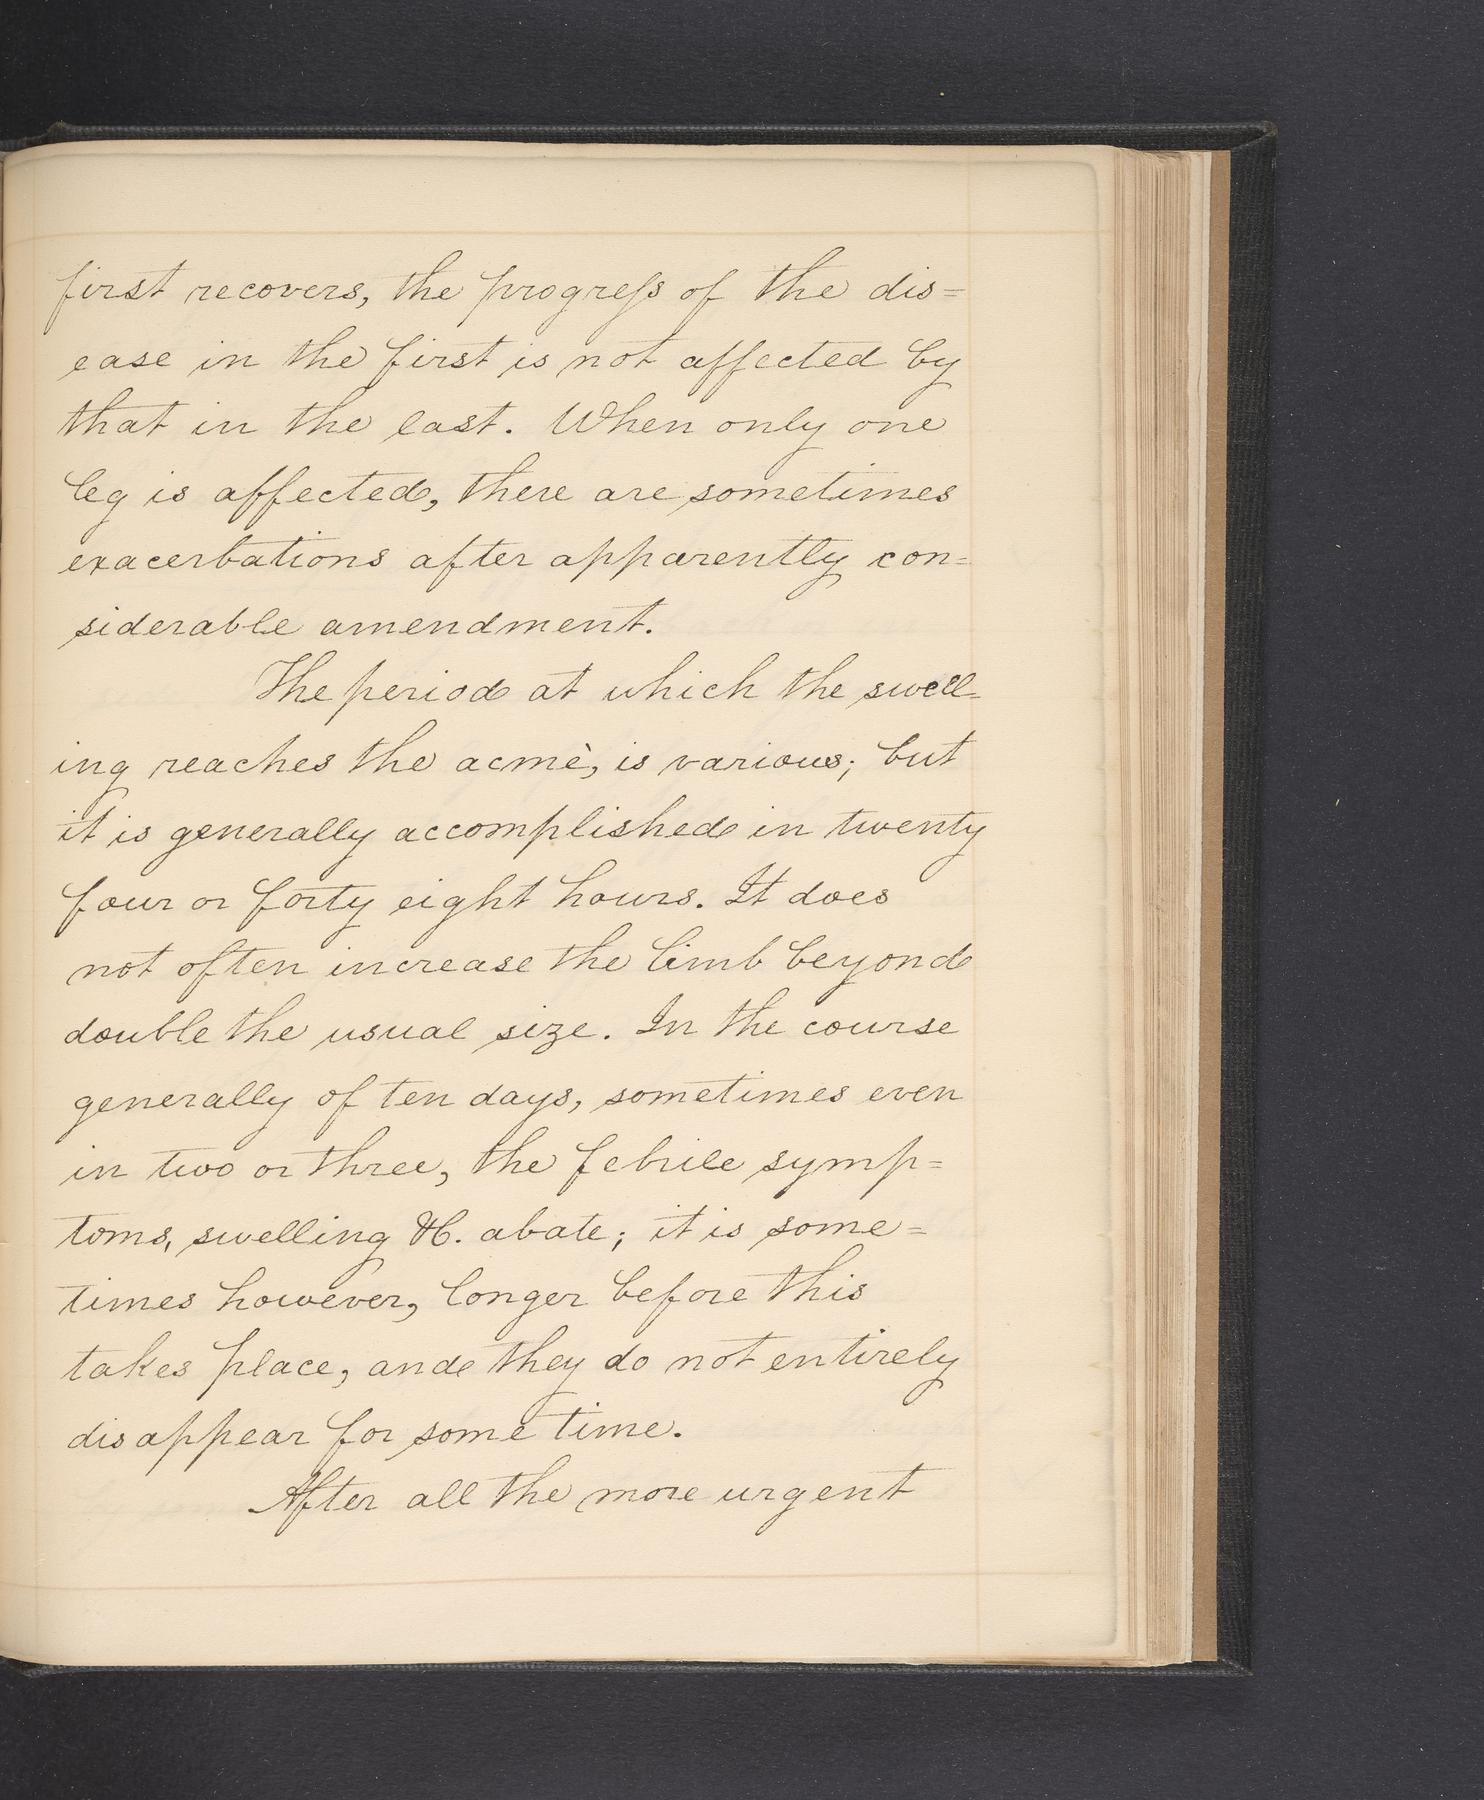 first recovers, the progreſs of the dis=
ease in the first is not affected by
that in the last. When only one
leg is affected, there are sometimes
exacerbations after apparently con=
siderable amendment.
The period at which the swell-
ing reaches the acmè, is various; but
it is generally accomplished in twenty
four or forty eight hours. It does
not often increase the limb beyond
double the usual size. In the course
generally of ten days, sometimes even
in two or three, the febrile symp=
toms, swelling &c. abate; it is some=
times however, longer before this
takes place, and they do not entirely
disappear for some time.
After all the more urgent